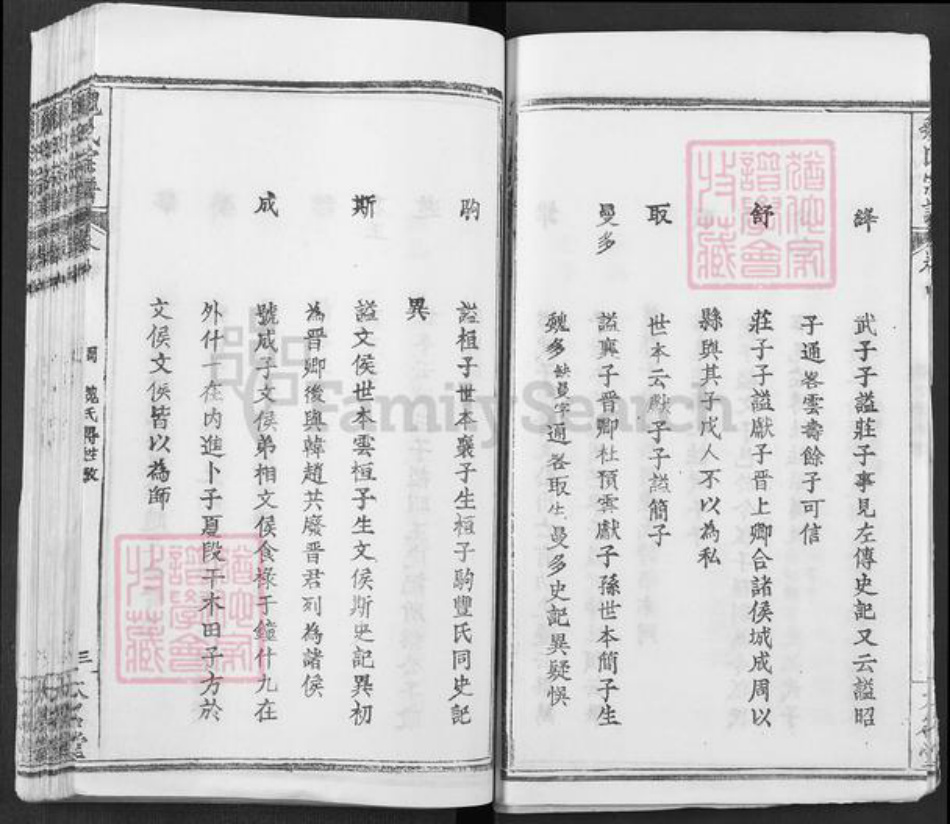 絳
武子子謚莊子事見左傳史記又云謚昭
子通畧雲壽餘子可信
舒
莊子子謚獻子晉上卿合諸侯城成周以
縣與其子戊人不以為私
取
世本云獻子子謚簡子
曼多
謚襄子晉卿杜預雲獻子孫世本簡子生
魏多缺曼字通畧取生曼多史記異疑悞
駒
謚桓子世本襄子生桓子駒豐氏同史記
異
斯
謚文侯世本雲桓子生文侯斯史記異初
為晉卿後與韓趙共廢晉君列為諸侯
成
號成子文侯弟相文侯食祿于鐘什九在
外什一在內進卜子夏段干木田子方於
文侯文侯皆以為師
魏氏宗譜
蜀 魏氏得姓攷
三
猶他家譜學會收藏
猶他家譜學會收藏
FamilySearch